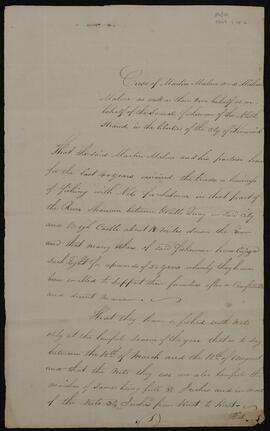 Case of Martin Malone and Michael
Malone as well on their own behalf as on
behalf of the several fishermen of the North
Strand in the liberties of the City of Limerick
That the said Martin Malone and his fore fathers have
for the last years carried the trade or business
of Fishing with Nets for Salmon in that part of
the River Shannon between Quay in said City
and Castle about Miles down the River
and that many other of said fishermen have enjoyed
such right for upwards of 50 years whereby they have
been enabled to support their families after a Comfortable
and decent manner
That they have fished with nets
only at the lawful season of the year that is to say
between the of March and the of August
and that the nets they use are also lawful the
meshes of same being full 3½ Inches and in most
of the Nets 3¾ Inches from Knot to Knot